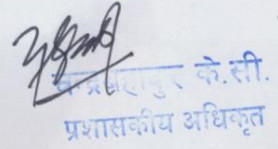 चन्द्रबहादुर के.सी.
प्रशासकीय अधिकृत